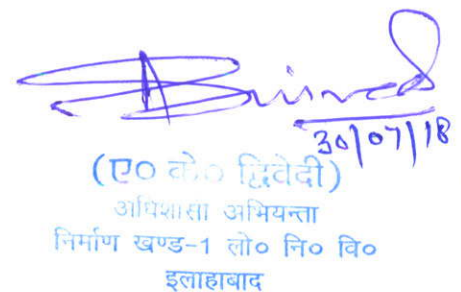 30/07/18
(ए० के० द्विवेदी)
अधिशासी अभियन्ता
निर्माण खण्ड-1 लो० नि० वि०
इलाहाबाद